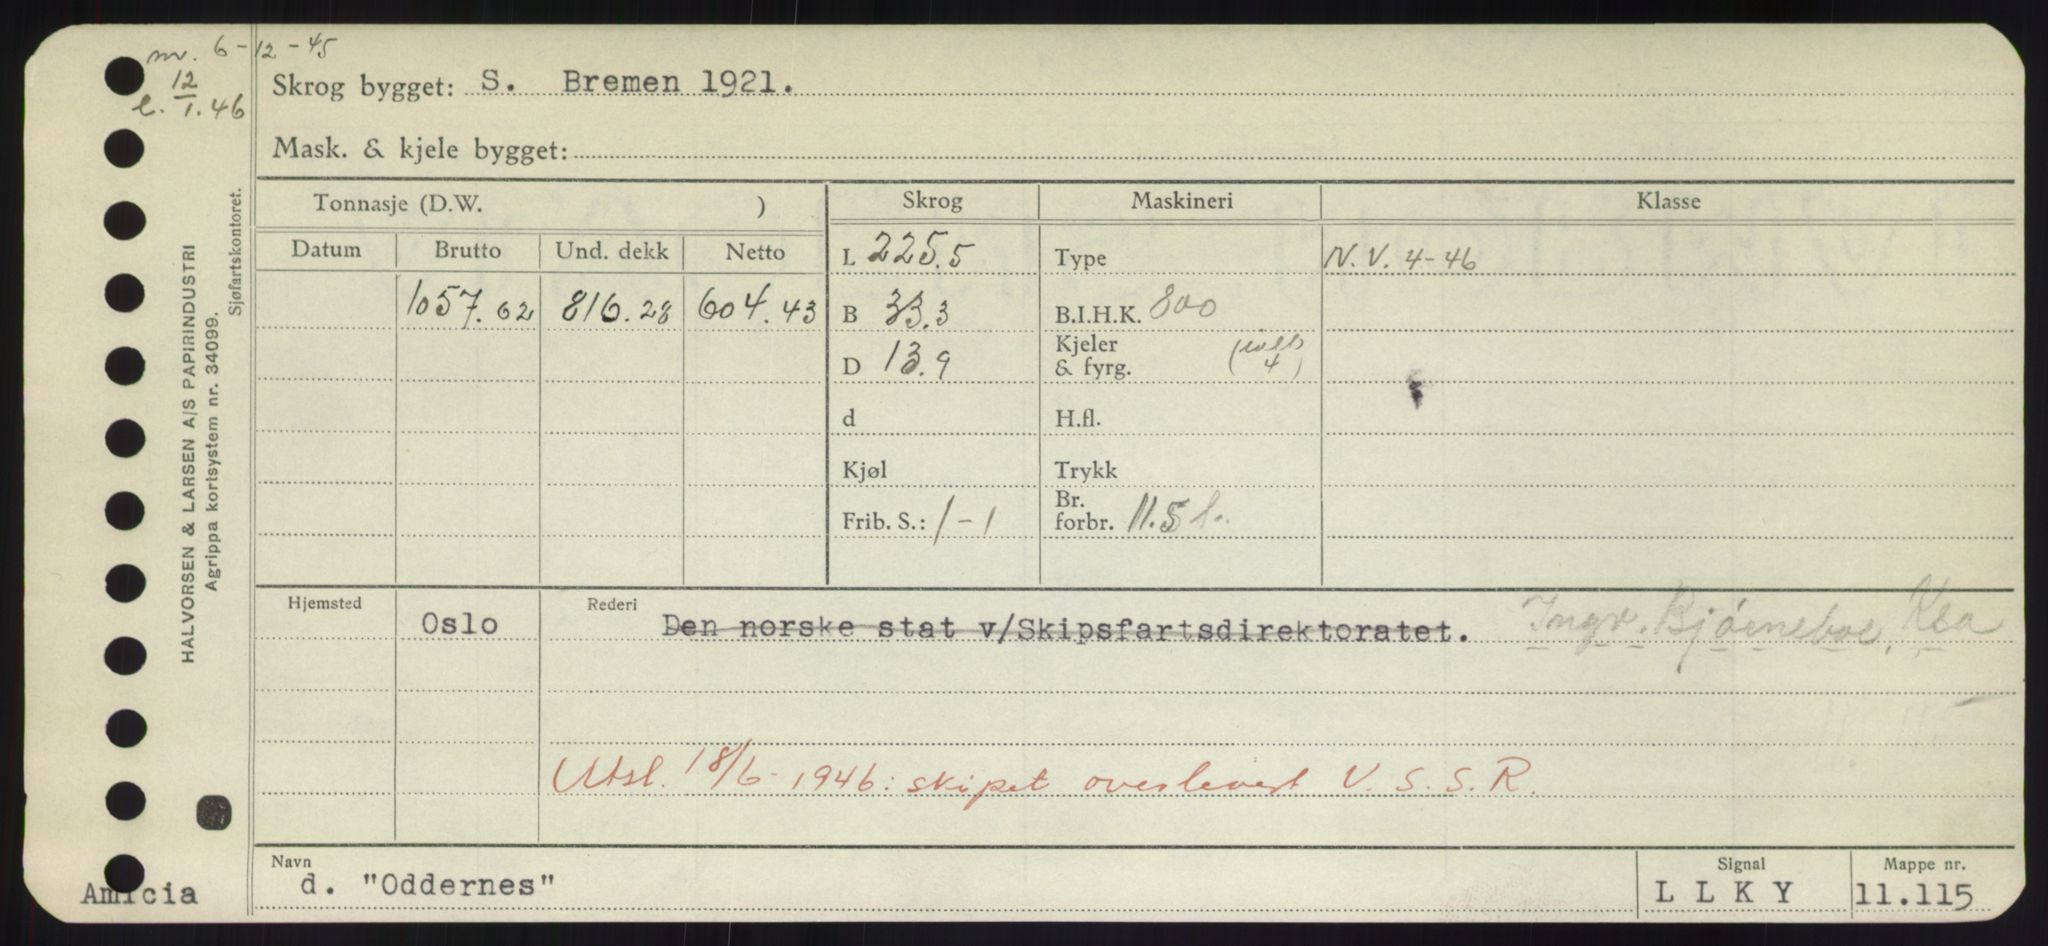 nr. 6-12-45
12
e. 1.46
Skrog bygget: S. Bremen 1921.
Mask. & kjele bygget:
Tonnasje (D.W. )
Skrog
Maskineri
Klasse
Datum
Brutto
Und. dekk
Netto
L 225.5
Type
N.V. 4-46
1057.62
816.28
604.43
B 33.3
B.I.H.K. 800
D 13.9
Kjeler
& fyrg.
4)
d
H.fl.
Kjøl
Trykk
Frib. S.: 1-1
Br.
forbr. 11.5 t.
HALVORSEN & LARSEN A/S PAPIRINDUSTRI
Agrippa kortsystem nr. 34099.
Sjøfartskontoret.
Hjemsted
Oslo
Rederi
Den norske stat v/Skipsfartsdirektoratet.
Ingv. Bjørneboe, Ksa
Utsl. 18/6-1946: skipet overlevert U.S.S.R.
Amicia
Navn
d. "Oddernes"
Signal
LLKY
Mappe nr.
11.115